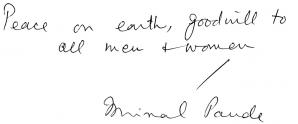 Peace on earth, goodwill to
all men + women
Mrinal Pande